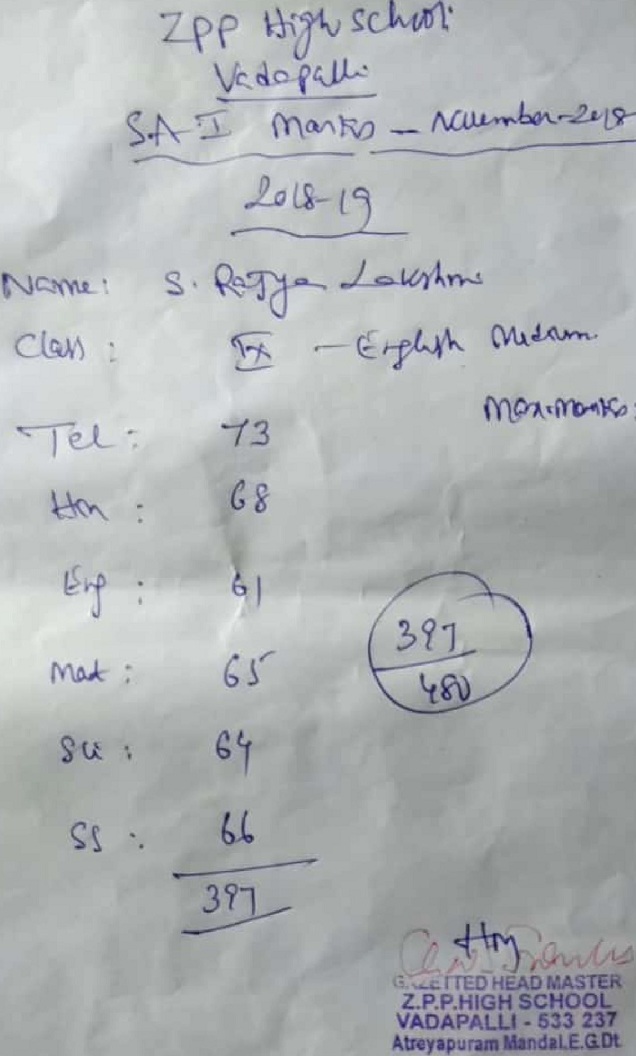 ZPP High school
Vadapalli
S.A-I Marks - November-2018
2018-19
Name: S. Rajya Lakshmi
Class: IX - English Medium
Max.marks:
Tel: 73
Hin: 68
Eng: 61
Mat: 65
397
480
Sci: 64
SS: 66
397
HM
GAZETTED HEAD MASTER
Z.P.P.HIGH SCHOOL
VADAPALLI - 533 237
Atreyapuram Mandal.E.G.Dt